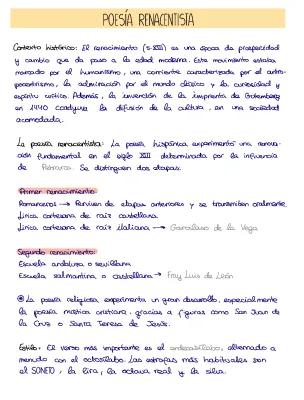 POESÍA RENACENTISTA
Contexto histórico: El renacimiento (s.XVI) es una época de prosperidad
y cambio que da paso a la edad moderna. Este movimiento estaba
marcado por el humanismo, una corriente caracterizada por el antro-
pocentrismo, la admiración por el mundo clásico y la curiosidad y
espíritu crítico. Además, la invención de la imprenta de Gutemberg
en 1440 contribuye la difusión de la cultura, en una sociedad
acomodada.
La poesía renacentista: La poesía hispánica experimentó una renova-
ción fundamental en el siglo XVI determinada por la influencia
de Petrarca. Se distinguen dos etapas.
Primer renacimiento:
Romanceros → Perviven de etapas anteriores y se transmiten oralmente
Lírica cortesana de raíz castellana
Lírica cortesana de raíz italiana → Garcilaso de la Vega
Segundo renacimiento:
Escuela andaluza o sevillana
Escuela salmantina o castellana → Fray Luis de León
La poesía religiosa experimenta un gran desarrollo, especialmente
la poesía mística cristiana, gracias a figuras como San Juan de
la Cruz o Santa Teresa de Jesús.
Estilo: El verso más importante es el endecasílabo, alternado a
menudo con el octosílabo. Las estrofas más habituales son
el SONETO, la lira, la octava real y la silva.